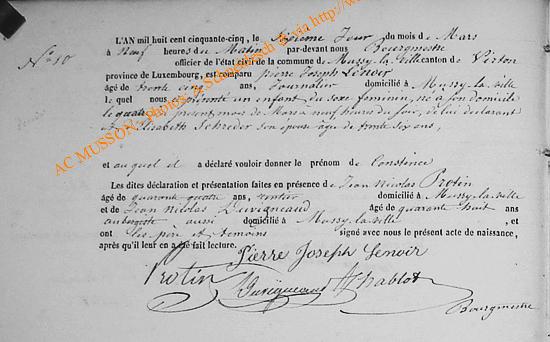 N° 10
L'AN mil huit cent cinquante-cinq, le Sixième Jour du mois de Mars
à Neuf heures du Matin par-devant nous Bourgmestre
officier de l'état civil de la commune de Mussy-la-Ville canton de Virton
province de Luxembourg, est comparu pierre Joseph Lenoir
âgé de trente cinq ans, Journalier domicilié à Mussy-la-ville
le quel nous a présenté un enfant du sexe feminin, né à son domicile
le quatre présent mois de Mars à neuf heures du soir, de lui déclarant
et Elisabeth Schreder son épouse agée de trente six ans,
et auquel il a déclaré vouloir donner le prénom de Constince
Les dites déclaration et présentation faites en présence de Jean Nicolas Protin
âgé de quarante quatre ans, rentier domicilié à Mussy-la-ville
et de Jean Nicolas Duvigneaud âgé de quarante huit ans
aubergiste aussi domicilié à Mussy-la-ville, et
ont les père et témoins signé avec nous le présent acte de naissance,
après qu'il leur en a été fait lecture.
Pierre Joseph Lenoir
Protin
Duvigneaud Hablot
Bourgmestre
AC MUSSON - Photos A. Schoedsack & via http://w